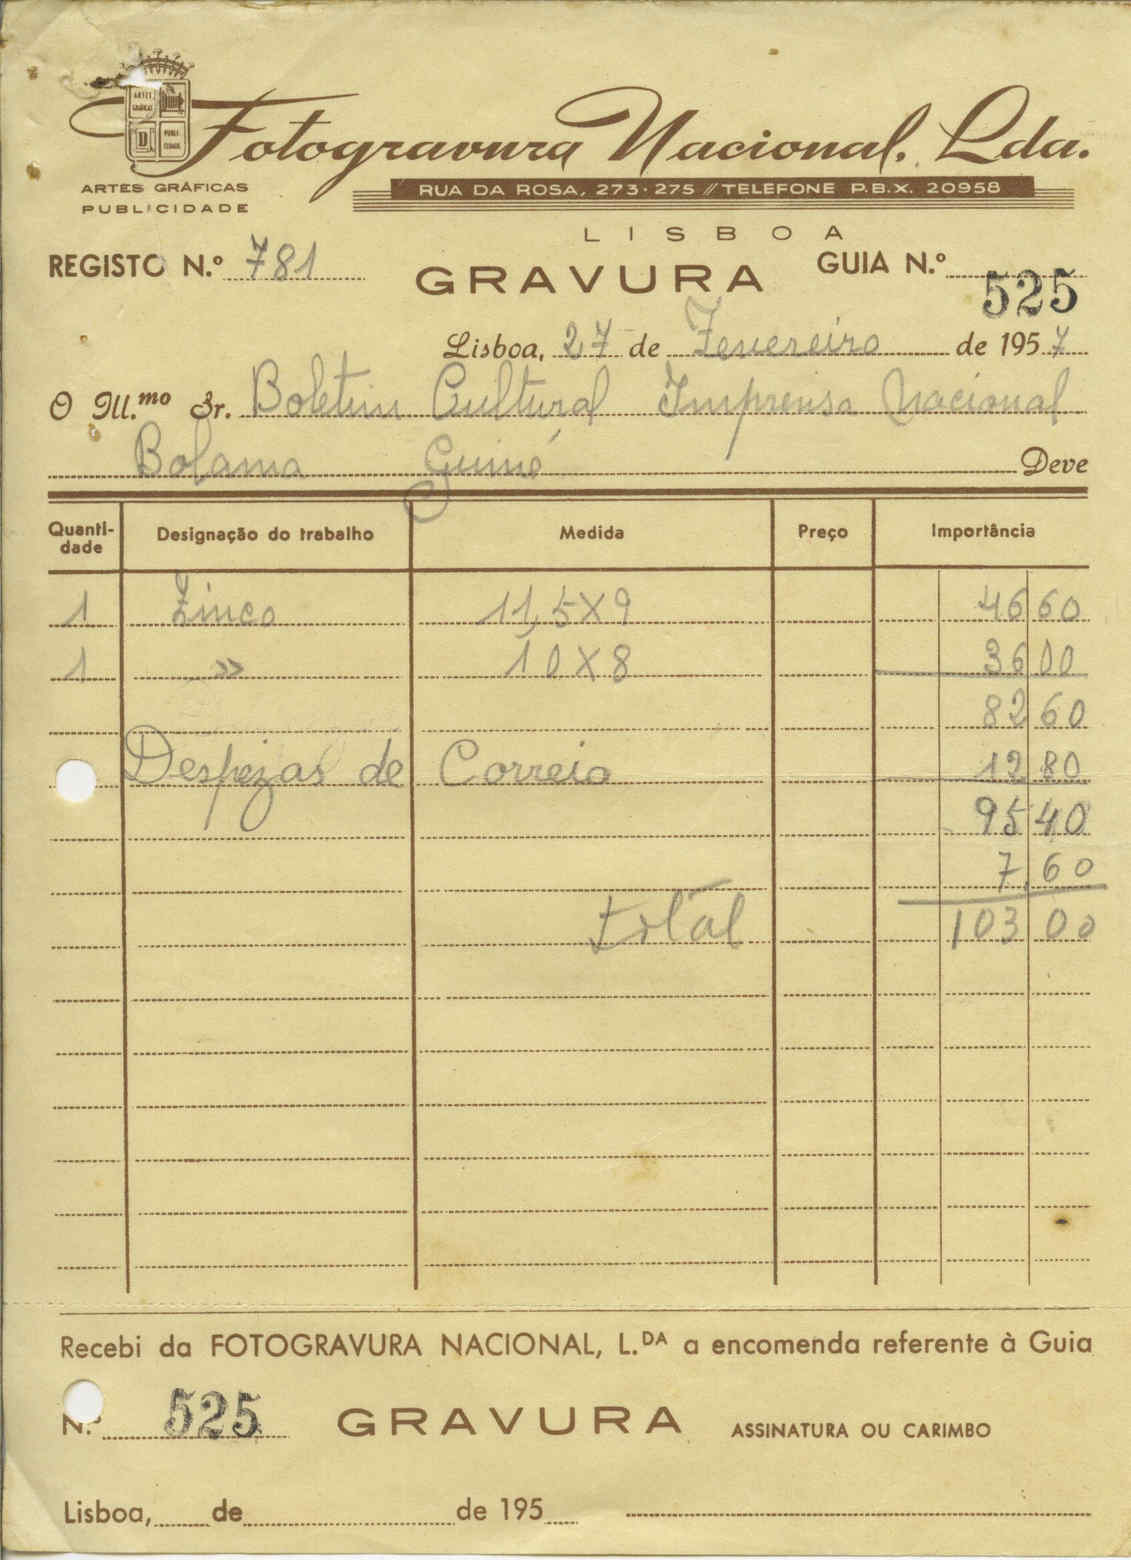 ARTES GRÁFICAS
PUBLICIDADE
Fotogravura Nacional, Lda.
ARTES GRÁFICAS
PUBLICIDADE
RUA DA ROSA, 273-275 // TELEFONE P.B.X. 20958
LISBOA
REGISTO N.º 781 GRAVURA GUIA N.º 525
Lisboa, 27 de Fevereiro de 1957
O Ill.mo Sr. Boletim Cultural Imprensa Nacional
Bolama Guiné Deve
Quanti-dade Designação do trabalho Medida Preço Importância
1 Zinco 11,5X9 46 60
1 » 10X8 36 00
82 60
Despezas de Correio 12 80
95 40
7,60
Total 103 00
Recebi da FOTOGRAVURA NACIONAL, L.DA a encomenda referente à Guia
N.º 525 GRAVURA ASSINATURA OU CARIMBO
Lisboa, de de 195